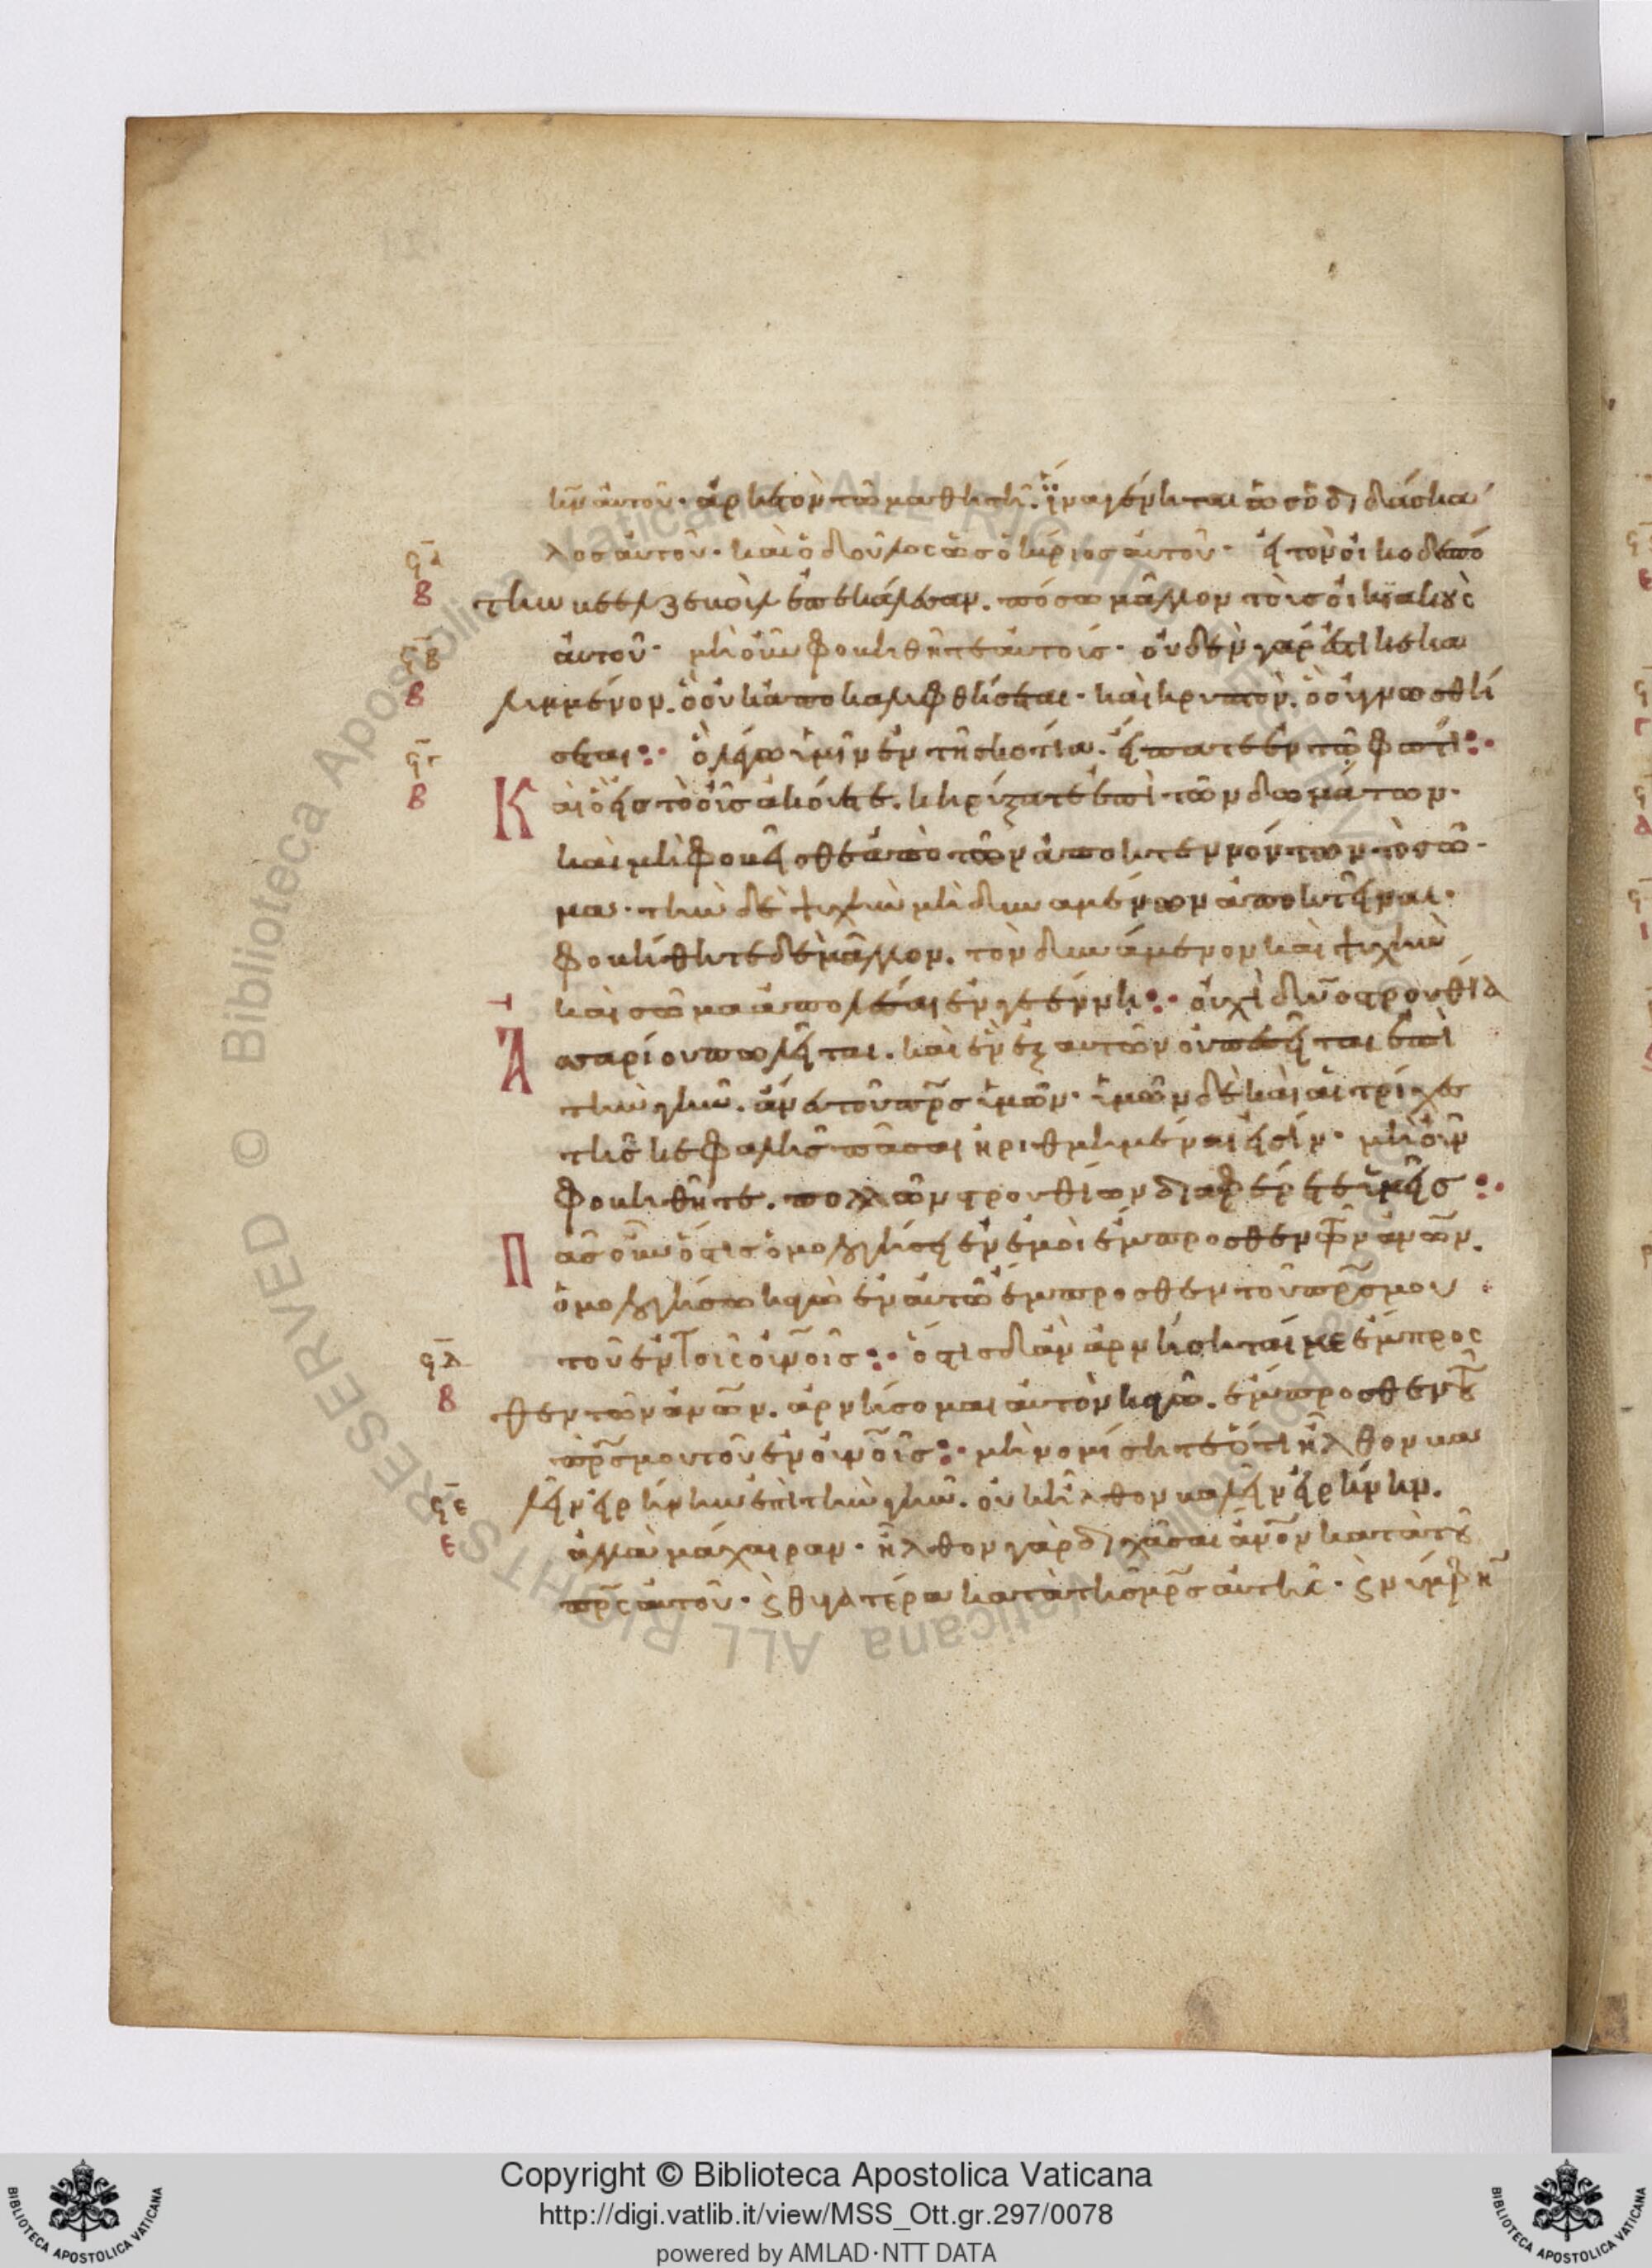 κ̅ν̅ αὐτοῦ· ἀρκετὸν τῶ μαθητῆ. ἵνα γένηται ὡς ὁ διδάσκα
λος αὐτοῦ· καὶ ὁ δοῦλος ὡς ὁ κύριος αὐτοῦ· εἰ τὸν οἰκοδεσπό
ϟα
β
την βεελζεβοὺλ ἐπεκάλεσαν. πόσω μᾶλλον τοῖς οἰκιακοὺς
αὐτοῦ· μὴ οὖν φοβηθῆτε αὐτοίς· οὐδὲν γάρ ἐστι κεκα
ϟβ
β
λυμμένον. ὃ οὐκ ἀποκαλυφθήσεται· καὶ κρυπτὸν. ὃ οὐ γνωσθή
σεται: ὃ λέγω ὑμῖν ἐν τῆ σκοτία. εἴπατε ἐν τῶ φωτί:
ϟγ
β
Καὶ ὃ εἰς τὸ οὖς ἀκούετε. κηρύξατε ἐπὶ τῶν δωμάτων·
καὶ μὴ φοβεῖσθε ἀπὸ τῶν ἀποκτεννόντων τὸ σῶ
μα· τὴν δὲ ψυχὴν μὴ δυναμένων ἀποκτεῖναι·
φοβήθητε δὲ μᾶλλον. τὸν δυνάμενον καὶ ψυχὴν
καὶ σῶμα ἀπολέσαι ἐν γεέννη: οὐχὶ δύο στρουθία
Ἀσσαρίου πωλεῖται. καὶ ἓν ἐξ αὐτῶν οὐ πεσεῖται ἐπὶ
τὴν γῆν. ἄνευ τοῦ π̅ρ̅ς ὑμῶν· ὑμῶν δὲ καὶ αἱ τρίχες
τῆς κεφαλῆς πᾶσαι ἠριθμημέναι εἰσίν· μὴ οὖν
φοβηθῆτε. πολλῶν στρουθίων διαφέρετε ὑμεῖς:
Πᾶς οὖν ὅστις ὁμολογήσει ἐν ἐμοὶ ἔμπροσθεν τῶν ἀν̅ων.
ὁμολογήσω κἀγὼ ἐν αὐτῶ ἔμπροσθεν τοῦ π̅ρ̅ς μου
τοῦ ἐν τοῖς οὐ̅νοῖς: ὅστις δ' ἂν ἀρνήσηταί με ἔμπροσ
ϟδ
β
θεν τῶν ἀν̅ων. ἀρνήσομαι αὐτὸν κἀγὼ. ἔμπροσθεν τοῦ
π̅ρ̅ς μου τοῦ ἐν οὐ̅νοῖς: μὴ νομίσητε ὅτι ἦλθον βα
ϟε
ε
λεῖν εἰρήνην ἐπὶ τὴν γῆν. οὐκ ἦλθον βαλεῖν εἰρήνην.
ἀλλὰ μάχαιραν· ἦλθον γὰρ διχάσαι ἄν̅ον κατὰ τοῦ
π̅ρ̅ς αὐτοῦ· ϗ θυγατέρα κατὰ τῆς μ̅ρ̅ς αὐτῆς· ϗ νύμφη
Copyright © Biblioteca Apostolica Vaticana
http://digi.vatlib.it/view/MSS_Ott.gr.297/0078
powered by AMLAD·NTT DATA
BIBLIOTECA APOSTOLICA VATICANA
BIBLIOTECA APOSTOLICA VATICANA
© Biblioteca Apostolica Vaticana ALL RIGHTS RESERVED